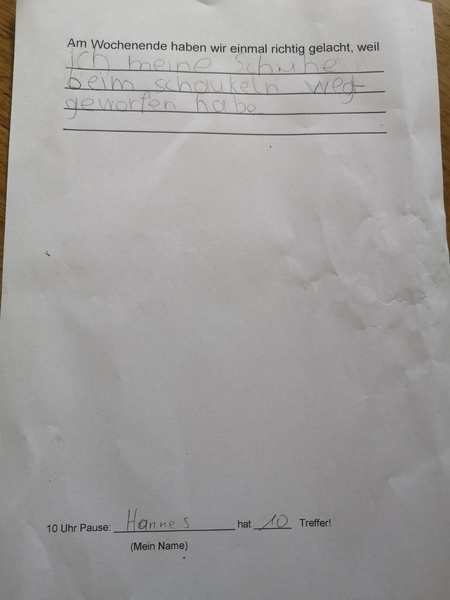 Am Wochenende haben wir einmal richtig gelacht, weil
ich meine Schuhe
beim schaukeln weg-
geworfen habe.
10 Uhr Pause: Hannes hat 10 Treffer!
(Mein Name)